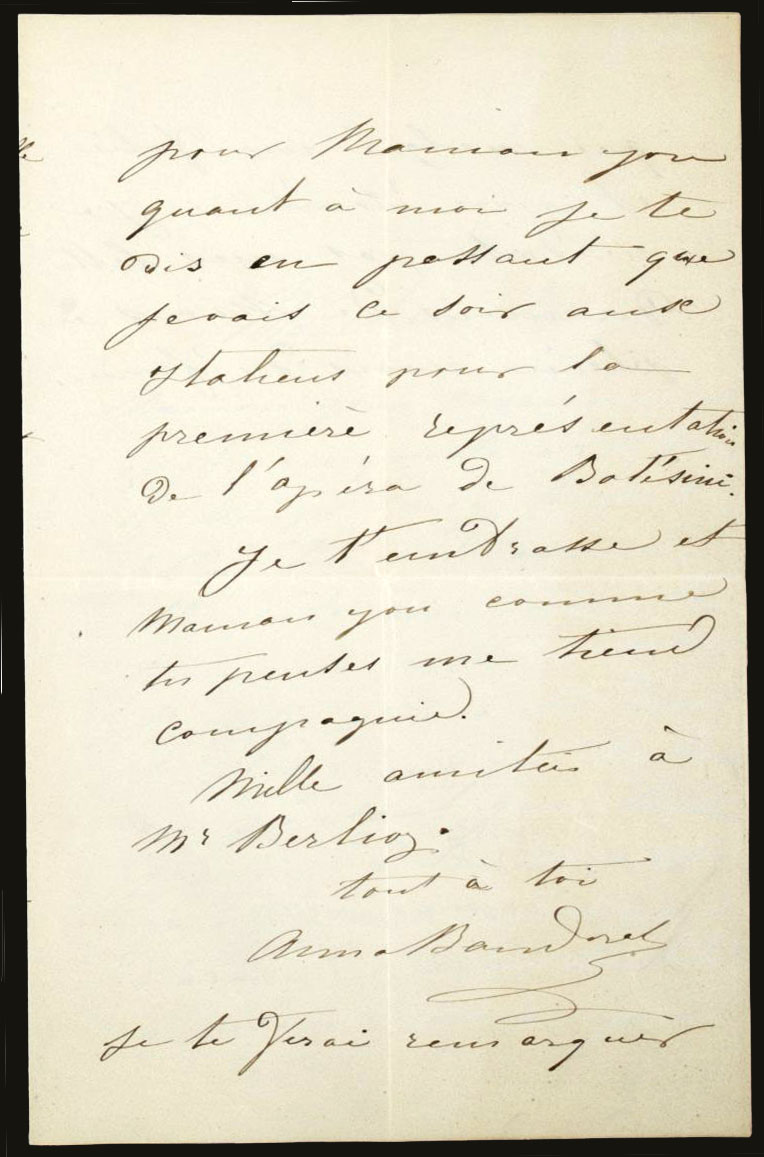 pour Maman you
quant à moi je te
dis en passant que
je vais ce soir aux
Italiens pour la
première représentation
de l'opéra de Botésini.
Je t'embrasse et
Maman you comme
tu penses me tiend
compagnie.
Mille amitiés à
Mr Berlioz.
tout à toi
Anna Banderali
je te ferai remarquer